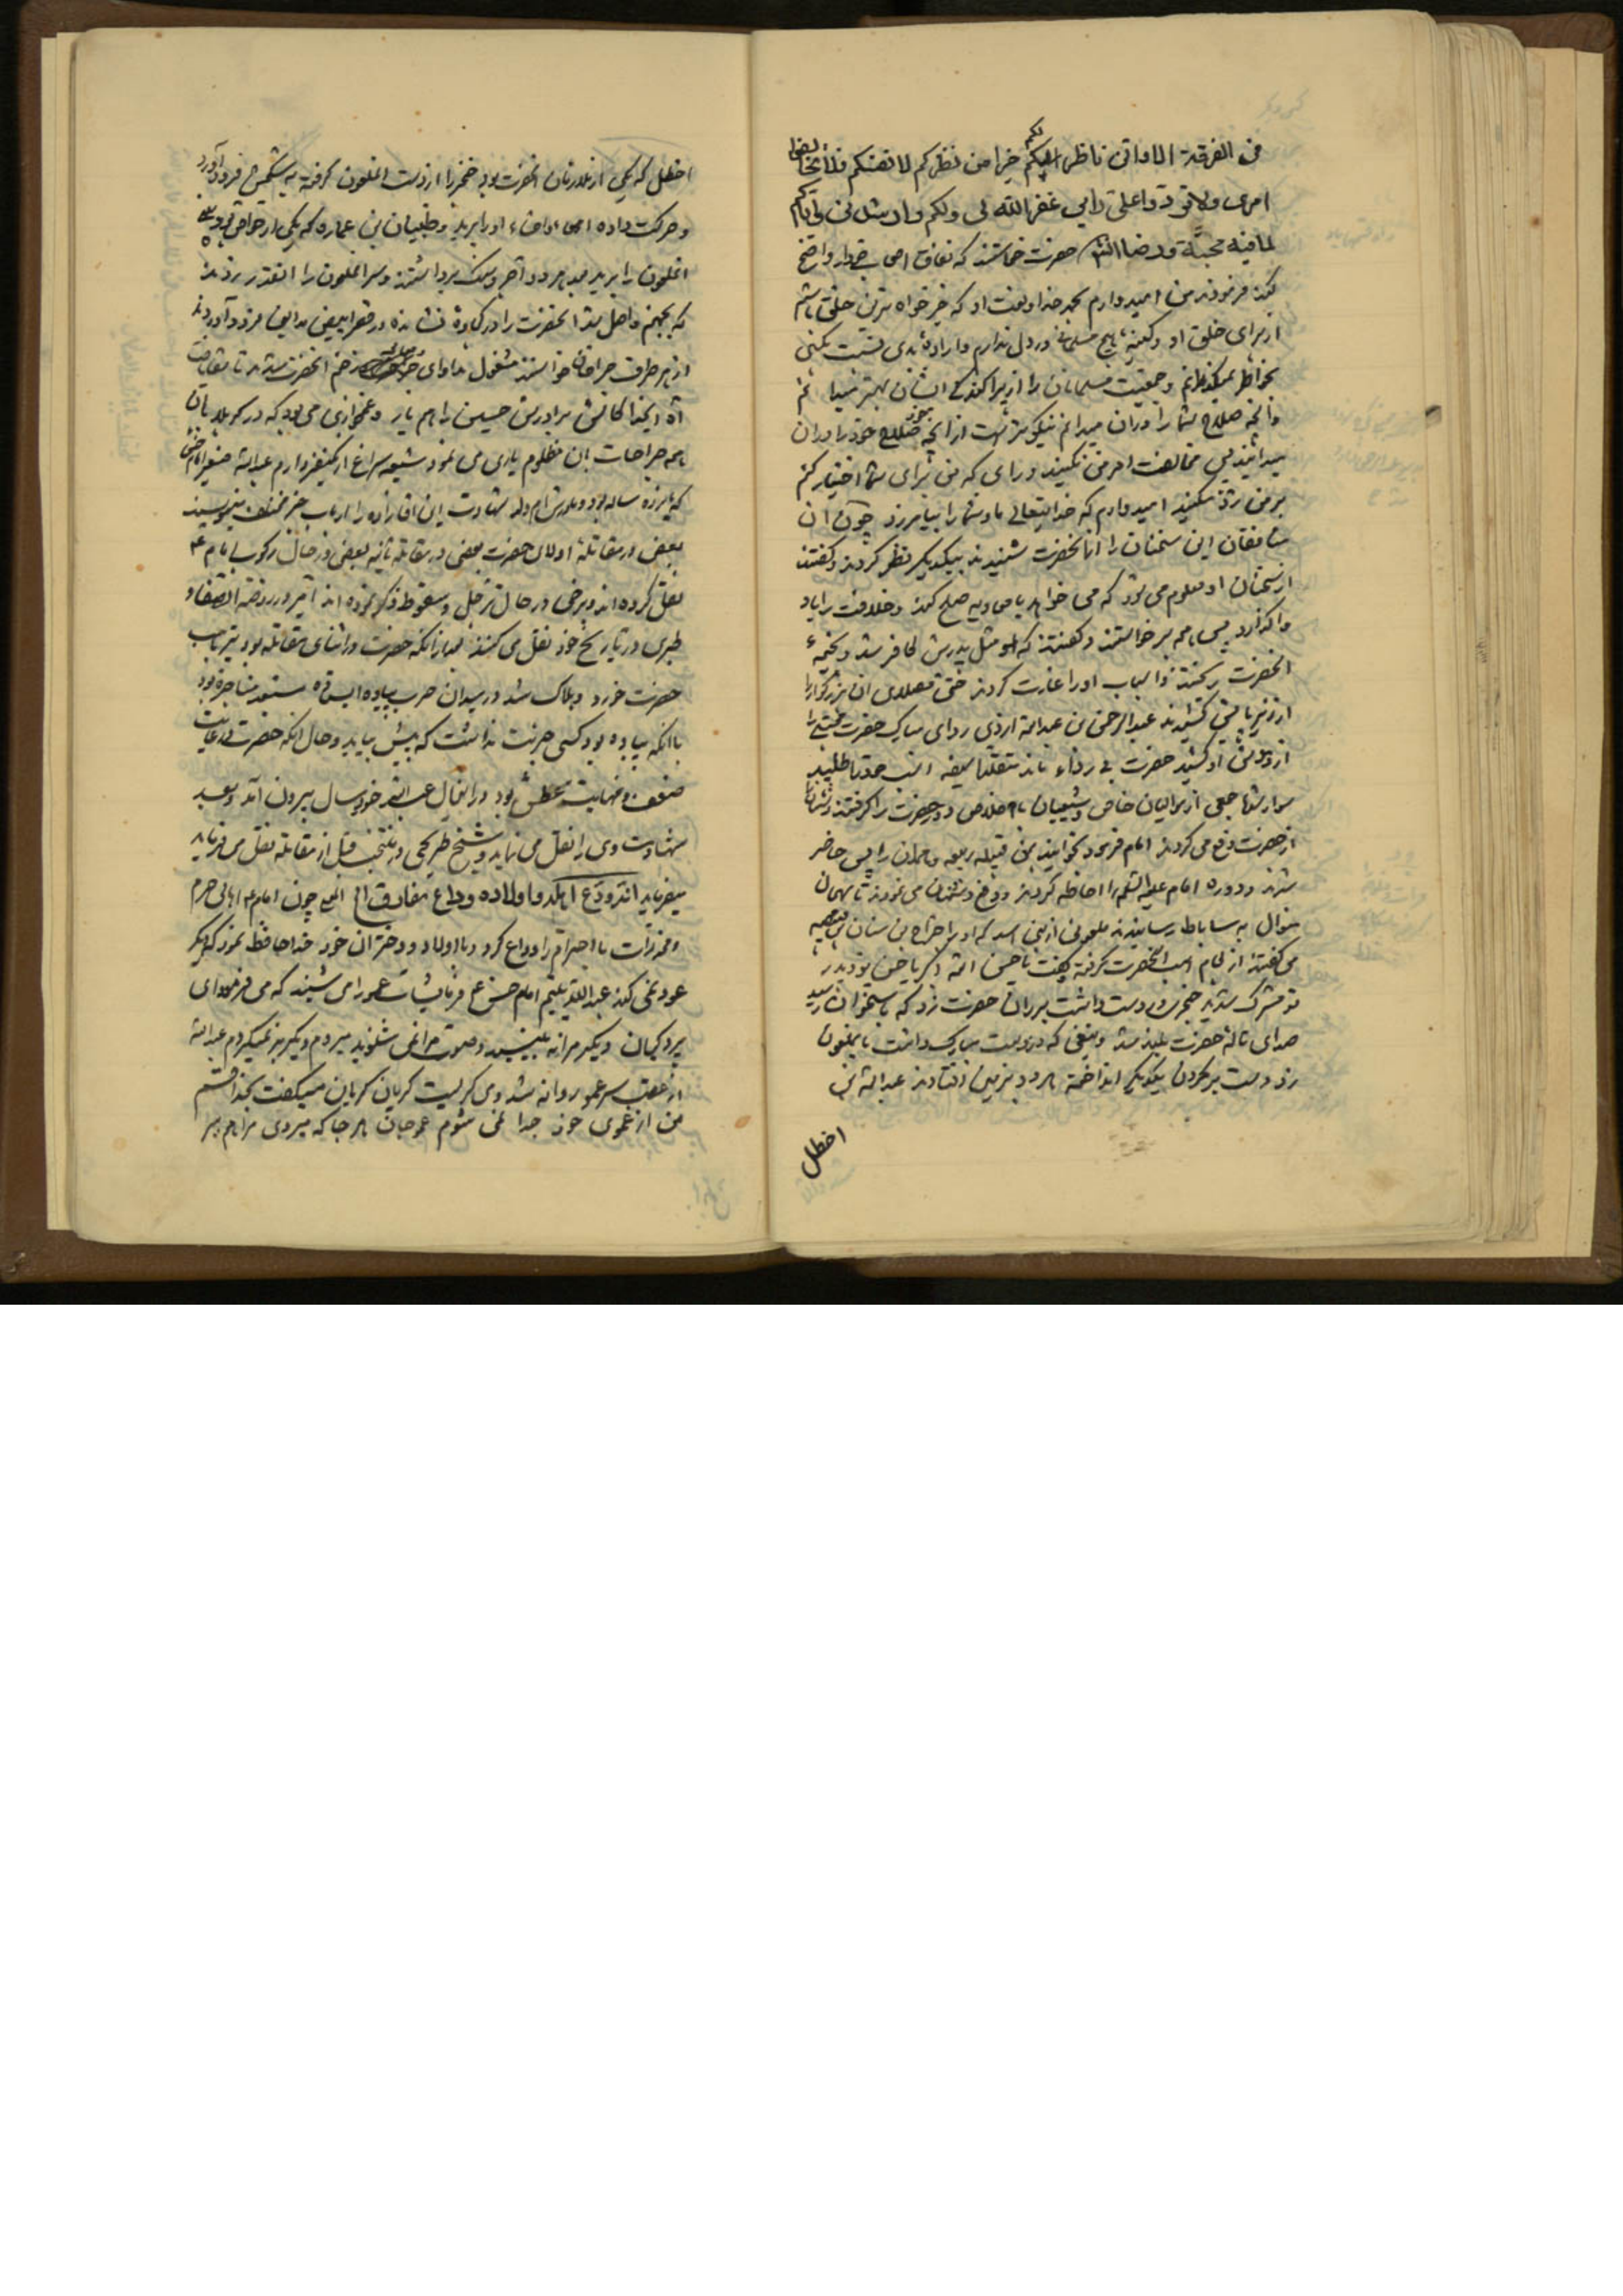 فی الفرقة الا وانی ناظر الیکم لکم خیرا من نظرکم لانفسکم فلا تخالفوا
امری ولا تردوا علی رایی غفر الله لی ولکم وارشدنی وایاکم
لما فیه محبة ورضا انشاء حضرت خواستند که نفاق اصحاب خود را واضح
کند فرمودند من امیدوارم بحمد خدا و منت او که خیرخواه ترین خلق باشم
از برای خلق او و کینه هیچ مسلمانی در دل ندارم و اراده بدی نسبت بکسی
بخاطر نمیگذرانم و جمعیت مسلمانان را از پراکندگی ایشان بهتر میدانم
وانچه صلاح شما را در ان میدانم نیکوتر است از انچه خود صلاح خود را در ان
میدانید پس مخالفت امر من نکنید و رای که من برای شما اختیار کنم
بر من رد مکنید امیدوارم که خدایتعالی ما و شما را بیامرزد چون ان
منافقان این سخنان را از انحضرت شنیدند بیکدیگر نظر کردند و گفتند
از سخنان او معلوم می شود که می خواهد با معاویه صلح کند و خلافت را باو
واگذارد پس همه برخواستند و گفتند که او مثل پدرش کافر شد و بخیمه
انحضرت ریختند و اسباب او را غارت کردند حتی مصلای ان بزرگوار را
از زیر پایش کشیدند عبدالرحمن بن عبدالله ازدی ردای مبارک حضرت مجتبی را
از دوش او کشید حضرت بی رداء ماند متقلدا سیفه اسب خود را طلبید
سوار شد جمعی از موالیان خاص و شیعیان با اخلاص دور حضرت را گرفتند دشمنان را
از حضرت دفع می کردند امام فرمود بخوانید بمن قبیله ربیعه و همدان را پس حاضر
شدند و دوره امام علیه السلام را احاطه کردند و دفع دشمنان می نمودند تا بهمان
منوال به ساباط رسانیدند ملعونی از بنی اسد که او را جراح بن سنان بن قبیصه
می گفتند از لجام اسب انحضرت گرفته و گفت یا حسن الله اکبر یا حسن تو و پدر
تو مشرک شدید خنجری در دست داشت بر ران حضرت زد که باستخوان رسید
صدای ناله حضرت بلند شد و تیغی که در دست مبارک داشت بانملعون
زد و دست بر گردن یکدیگر انداخته هر دو بزمین افتادند عبدالله بن
اخطل
اخطل که یکی از ملازمان انحضرت بود خنجر را از دست انملعون گرفته به شکمش فرود آورد
و حرکت داده امعا و احشاء او را برید و ظبیان بن عماره که یکی از خواص بود بینی
انملعون را برید بعد هر دو آجر و سنگ برداشتند و سر انملعون را انقدر زدند
که بجهنم واصل شد انحضرت را در کجاوه نشانده در قصر ابیض مداین فرود آوردند
از هر طرف جراحان خواستند مشغول مداوای زخم انحضرت شدند تا شفا یافت
آه ایخدا کاش برادرش حسین را هم یار و غمخواری می بود که در کربلا بآن
همه جراحات ان مظلوم یاری می نمود شیعه سراغ از یکنفر دارم عبدالله صغیر امام حسن
که یازده ساله بود و مادرش ام ولد شهادت این اقازاده را ارباب خبر مختلف مینویسند
بعضی در مقاتله اولای حضرت بعضی در مقاتله ثانیه بعضی در حال رکوب امام ع
نقل کرده اند و برخی در حال ترجل و سقوط ذکر نموده اند آخر در روضة الصفا و
طبری در تاریخ خود نقل می کنند بعد از انکه حضرت در اثنای مقاتله بود تیر باسب
حضرت خورد و هلاک شد در میدان حرب پیاده ایستاده مستعد مشاجره بود
با انکه پیاده بود کسی جرئت نداشت که پیش بیاید و حال انکه حضرت در غایت
ضعف و نهایت عطش بود در انحال عبدالله خوردسال بیرون آمد و بعد
شهادت وی را نقل می نماید و شیخ طریحی در منتخب قبل از مقاتله نقل می فرماید
میفرماید انه ودّع اهله و اولاده وداع مفارق الخ چون امام ع اهالی حرم
و مخدرات با احترام را وداع کرد و با اولاد و دختران خود خداحافظ نمود که دیگر
عود نمی کند عبدالله یتیم امام حسن ع فرمایشات عمو را می شنید که می فرمود ای
پردگیان دیگر مرا نه بینید و صوت مرا نمی شنوید میروم و دیگر بر نمیگردم عبدالله
از عقب سر عمو روانه شد وی گریست گریان گریان میگفت بخدا قسم
من از عموی خود جدا نمی شوم عمو جان هر جا که میروی مرا هم ببر